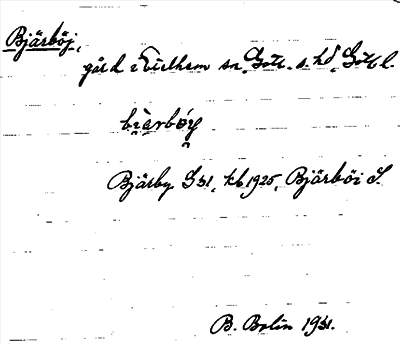 Bjärböj,
gård i Vielhem sn. Gotl. s. hd, Gotl l.
bjèrbóy
Bjärby G 31, kb 1925, Bjärböi S.
B. Bolin 1931.